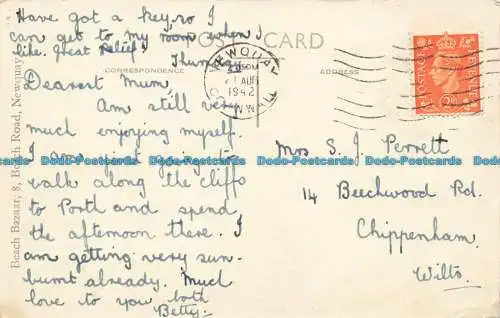 Have got a key, so I
can get to my room when I
like. Great relief! Thursday
POST CARD
CORRESPONDENCE
ADDRESS
Dearest Mum,
Am still very
much enjoying myself.
I am just going to
walk along the cliffs
to Porth and spend
the afternoon there. I
am getting very sun-
burnt already. Much
love to you both
Betty.
Mrs S. J. Perrett
14 Beechwood Rd.
Chippenham.
Wilts.
Beach Bazaar, 8, Beach Road, Newquay
NEWQUAY
AUG
1942
POSTAGE
Dodo-Postcards Dodo-Postcards Dodo-Postcards Dodo-Postcards Dodo-Postcards